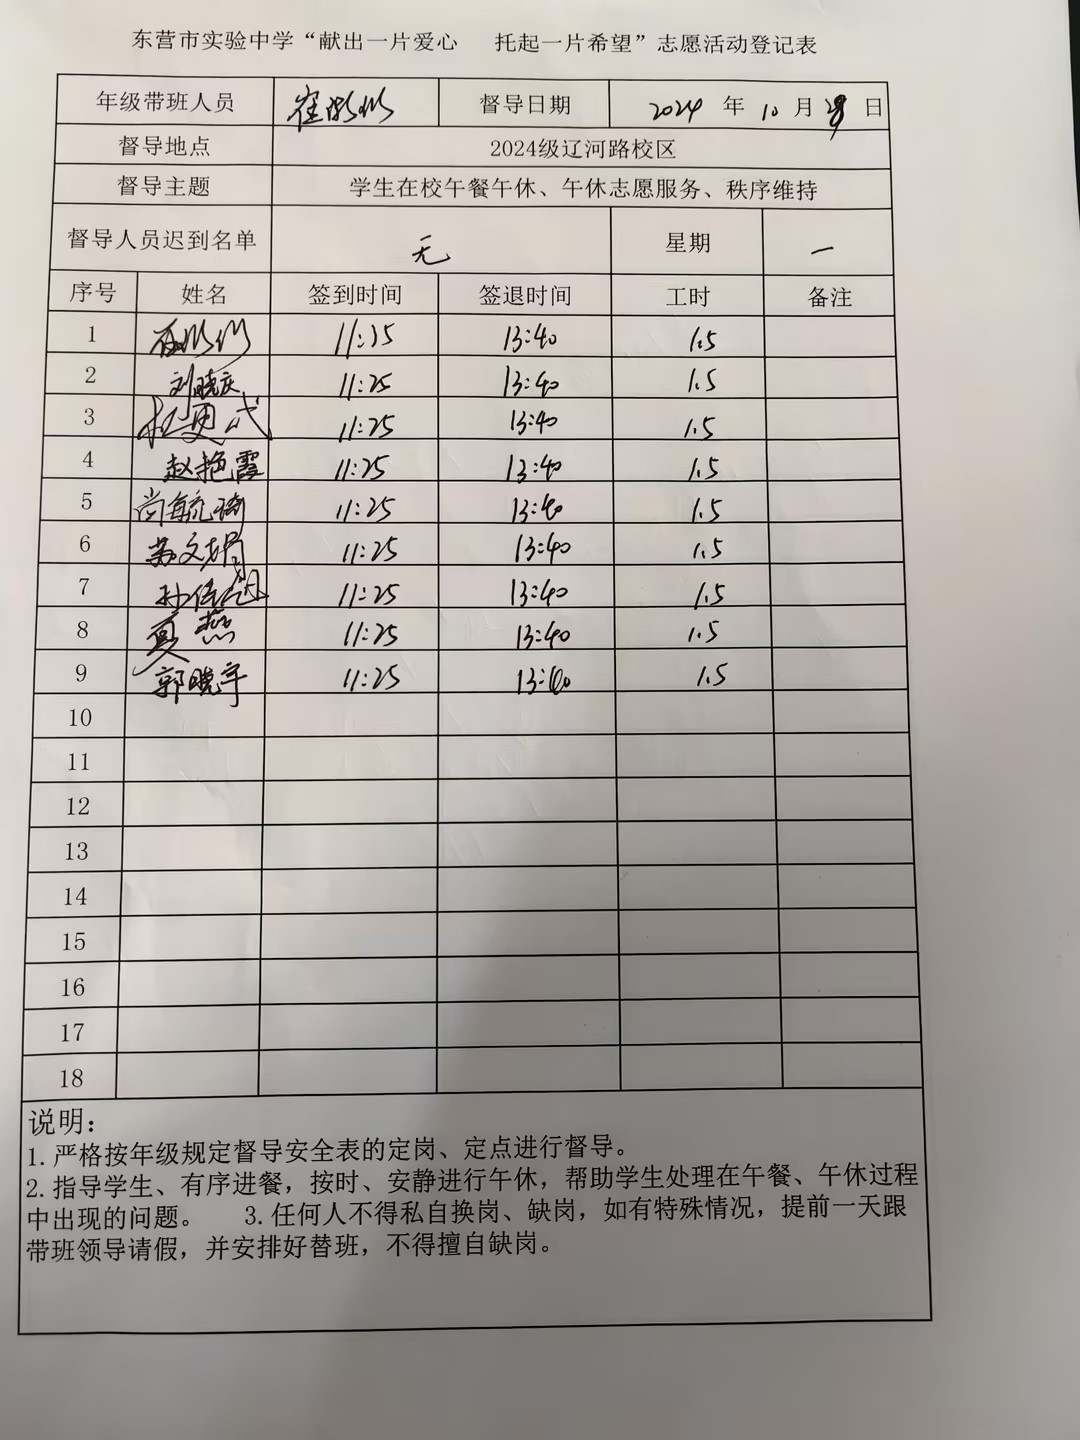 东营市实验中学“献出一片爱心 托起一片希望”志愿活动登记表
年级带班人员 崔 督导日期 2024 年 10 月 日
督导地点 2024级辽河路校区
督导主题 学生在校午餐午休、午休志愿服务、秩序维持
督导人员迟到名单 无 星期 一
序号 姓名 签到时间 签退时间 工时 备注
1 11:25 13:40 1.5
2 刘晓庆 11:25 13:40 1.5
3 11:25 13:40 1.5
4 赵艳霞 11:25 13:40 1.5
5 尚毓琦 11:25 13:40 1.5
6 苏文娟 11:25 13:40 1.5
7 孙 11:25 13:40 1.5
8 夏燕 11:25 13:40 1.5
9 郭晓宇 11:25 13:40 1.5
10
11
12
13
14
15
16
17
18
说明：
1.严格按年级规定督导安全表的定岗、定点进行督导。
2.指导学生、有序进餐，按时、安静进行午休，帮助学生处理在午餐、午休过程
中出现的问题。 3.任何人不得私自换岗、缺岗，如有特殊情况，提前一天跟
带班领导请假，并安排好替班，不得擅自缺岗。